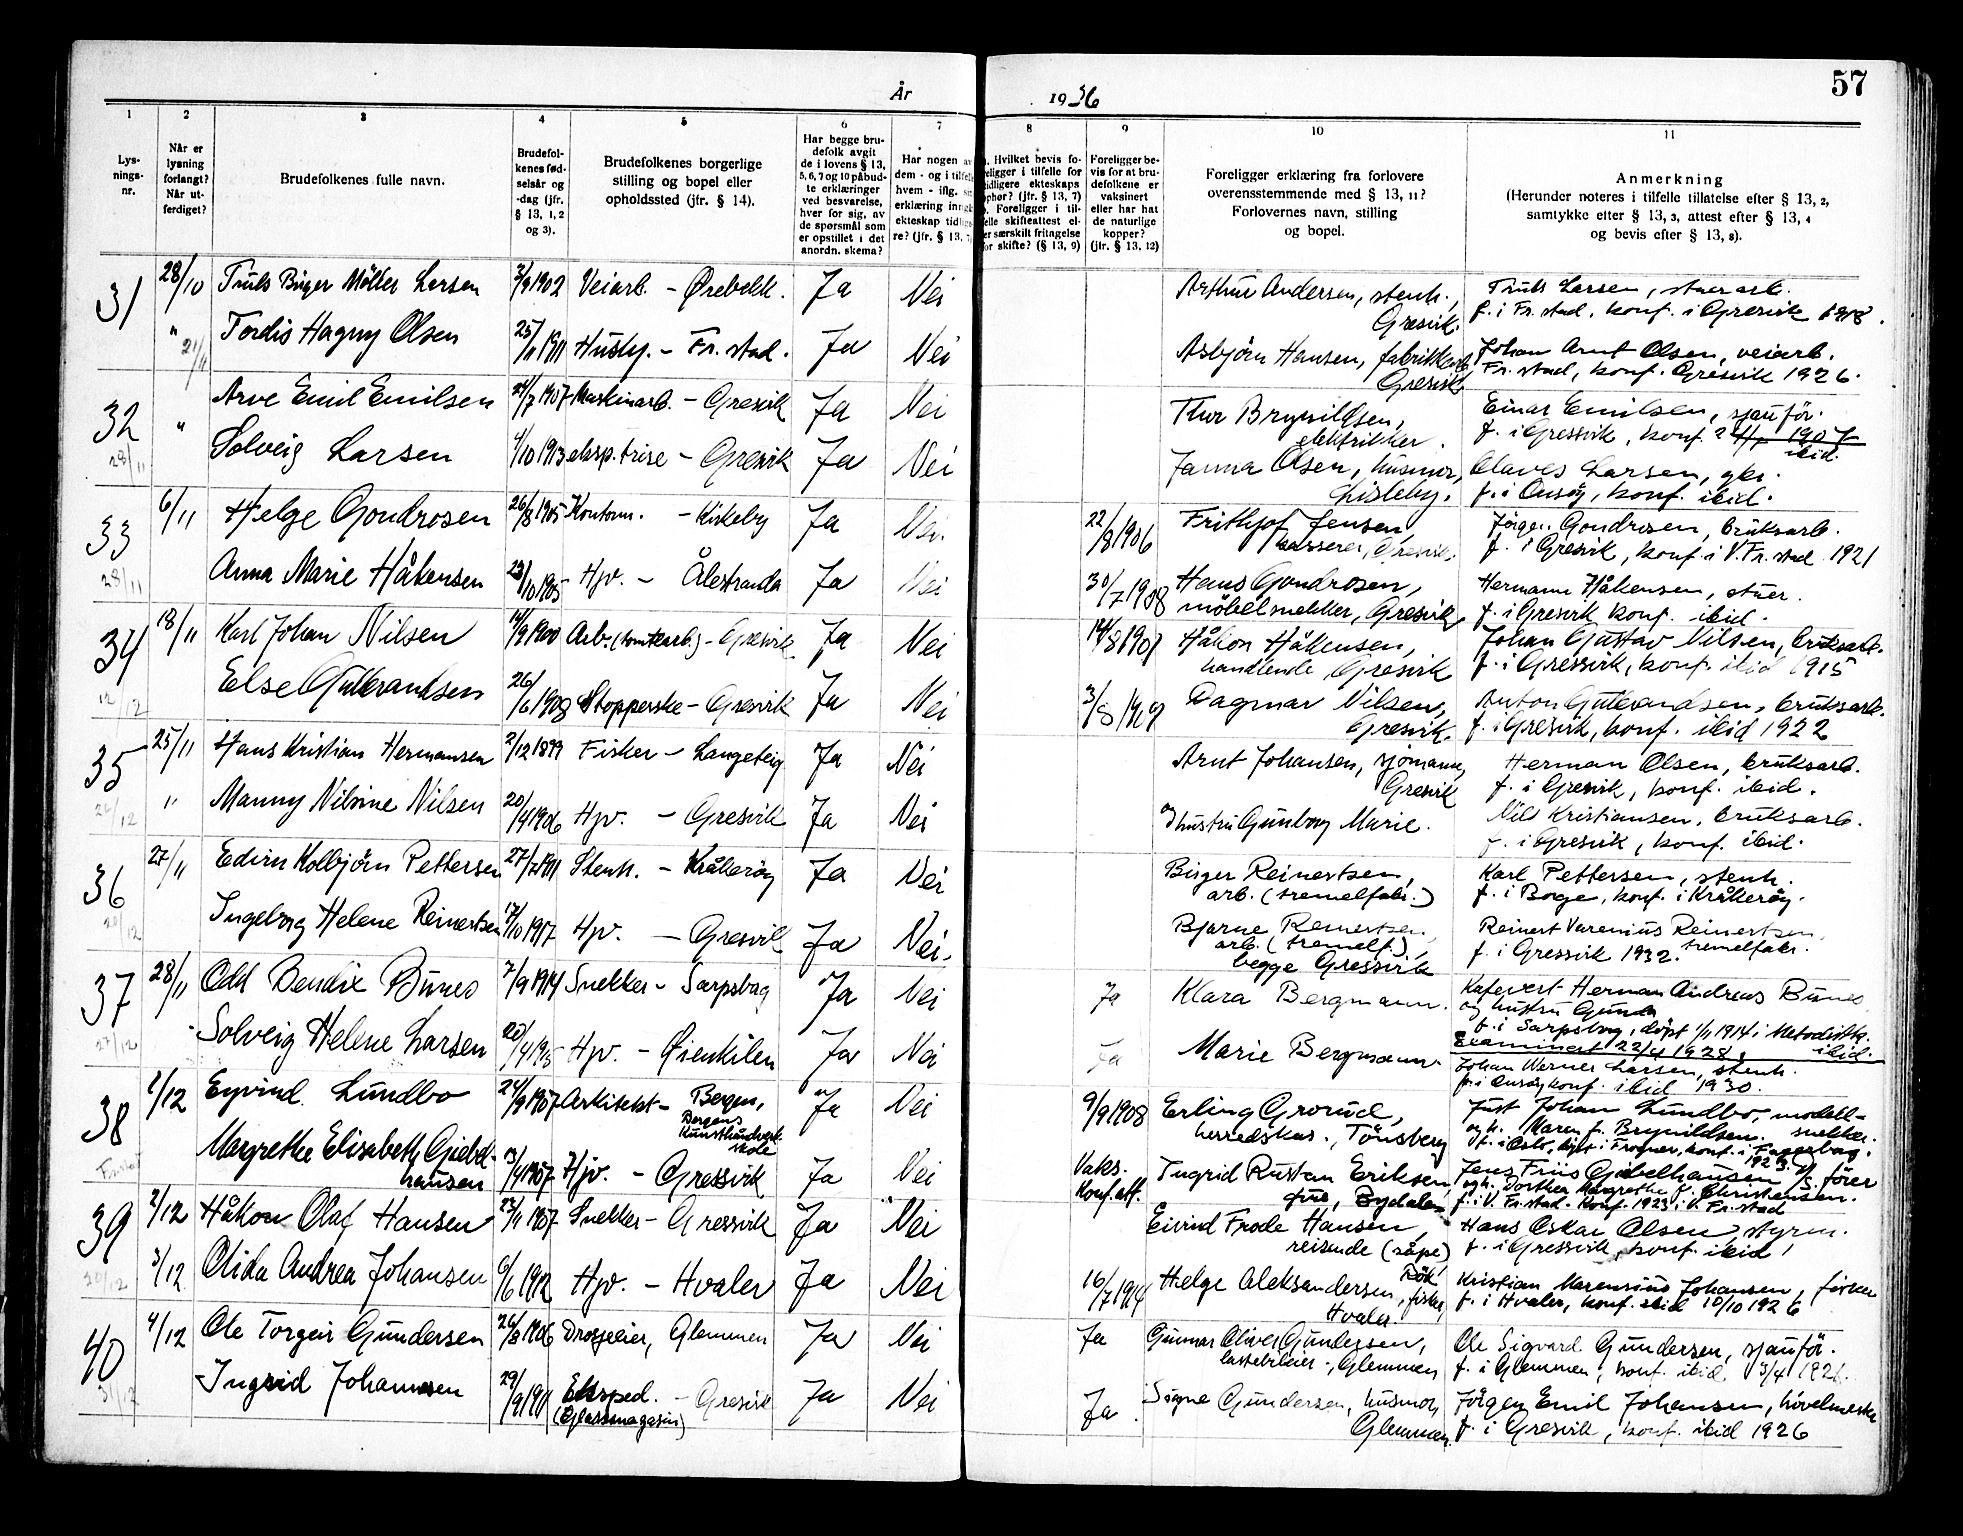 57
År 1936
1 2 3 4 5 6 7 8 9 10 11
Lysningsnr.
Når er lysning forlangt? Når utferdiget?
Brudefolkenes fulle navn.
Brudefolkenes fødselsår og -dag (jfr. § 13, 1, 2 og 3).
Brudefolkenes borgerlige stilling og bopel eller opholdssted (jfr. § 14).
Har begge brudefolk avgit de i lovens § 13, 5, 6, 7 og 10 påbudte erklæringer ved besvarelse, hver for sig, av de spørsmål som er opstillet i det anordn. skema?
Har nogen av
dem - og i tilfelle
hvem - iflg. sin
erklæring inngått
ekteskap tidligere? (jfr. § 13, 7)
Hvilket bevis foreligger i tilfelle for tidligere ekteskaps ophør? (jfr. § 13, 7)
Foreligger i tilfelle skifteattest eller særskilt fritagelse for skifte? (§ 13, 9)
Foreligger bevis for at brudefolkene er vaksinert eller har hat de naturlige kopper? (jfr. § 13, 12)
Foreligger erklæring fra forlovere overensstemmende med § 13, 11? Forlovernes navn, stilling og bopel.
Anmerkning
(Herunder noteres i tilfelle tillatelse efter § 13, 2, samtykke efter § 13, 3, attest efter § 13, 4 og bevis efter § 13, 8).
31 28/10 Truls Birger Möller Larsen 3/9 1902 Veiarb. - Ørebekk. Ja Nei Arthur Andersen, stenh., Gresvik. Truls Larsen, stuerarb. f. i Fr.stad, konf. i Gresvik 1918.
" 21/11 Tordis Hagny Olsen 25/11 1911 Husly. - Fr.stad. Ja Nei Asbjørn Hansen, fabrikkarb. Gresvik Johan Arnt Olsen, veiarb. Fr.stad, konf. Gresvik 1926.
32 " Arve Emil Emilsen 24/7 1907 Maskinarb. - Gresvik Ja Nei Thor Brynildsen, elektrikker. Einar Emilsen, sjauför. f. i Gressvik, konf. ibid.
28/11 Solveig Larsen 4/10 1913 eksp.trise - Gresvik Ja Nei Janna Olsen, husmor, Lisleby. Olaves Larsen, f. i Onsøy, konf. ibid.
33 6/11 Helge Gondrosen 26/8 1905 Kontorm. - Kirkeby Ja Nei. 22/8 1906 Frithjof Jensen, kasserer, Gresvik. Jörgen Gondrosen, bruksarb. f. i Gresvik, konf. i V. Fr.stad 1921
28/11 Anna Marie Håkensen 23/10 1905 Hjv. - Ålestranda Ja Nei 30/7 1908 Hans Gondrosen, möbelsnekker, Gresvik Hermann Håkensen, stuer. f. i Gresvik konf. ibid.
34 18/11 Karl Johan Nilsen 14/9 1900 Arb. (tomtearb.) - Gresvik. Ja Nei 14/8 1901 Håkon Håkensen, handlende Gresvik Johan Gustav Nilsen, bruksarb. f. i Gressvik, konf. ibid 1915
12/12 Else Gulbrandsen 26/6 1908 Stopperske - Gresvik Ja Nei 3/8 1909 Dagmar Nilsen, Gresvik. Anton Gulbrandsen, bruksarb. f. i Gresvik, konf. ibid 1922
35 25/11 Hans Kristian Hermansen 2/12 1899 Fisker - Langeteig Ja Nei Arnt Johansen, sjömann, Gresvik Herman Olsen, bruksarb. f. i Gresvik, konf. ibid.
26/12 " Manny Nilsine Nilsen 20/4 1906 Hjv. - Gresvik Ja Nei og hustru Gunborg Marie. Nils Kristiansen, bruksarb. f. i Gresvik, konf. ibid.
36 27/11 Edvin Kolbjörn Pettersen 27/2 1911 Stenh. - Kråkeröy Ja Nei Birger Reinertsen, arb. (tremelfabr.) Karl Pettersen, stenh. f. i Borge, konf. i Kråkeröy.
20/12 Ingeborg Helene Reinertsen 17/10 1917 Hjv. - Gresvik Ja Nei. Bjarne Reinertsen, arb. (tremelf.), begge Gressvik Reinert Varenius Reinertsen, tremelfabr. f. i Gressvik 1932.
37 28/11 Odd Bendix Bünes 7/9 1914 Snekker - Sarpsborg Ja Nei Ja Klara Bergmann. Kafevert Herman Andreas Bünes og hustru Guna f. i Sarpsborg, döpt 1/11 1914 i Metodistk. ibid. Examinert 22/4 1928.
27/12 Solveig Helene Larsen 20/4 1915 Hjv. - Øienkilen Ja Nei Ja Marie Bergmann. Johan Werner Larsen, stenh. f. i Onsøy konf. ibid 1930.
38 1/12 Eyvind Lundbo 24/9 1907 Arkitekt - Bergen, Bergens Kunsthåndverkskole Ja Nei 9/9 1908 Erling Grorud, herredskas., Tönsberg Just Johan Lundbo, modellsnekker. og h. Maren f. Brynildsen. f. i Oslo, döpt i Frogner, konf. i Fagerborg. 1923.
Fr.stad Margrethe Elisabeth Giebelhausen 13/4 1907 Hjv. - Gressvik Ja Nei Vaks. Konf.att. Ingrid Rustan Eriksen, frue, Bydalen Jens Friis Giebelhausen, förer og h. Dorthea Margrethe f. Christensen. f. i V. Fr.stad. Konf. 1923 i V. Fr.stad
39 2/12 Håkon Olaf Hansen 23/11 1907 Snekker - Gressvik Ja Nei Eivind Frode Hansen, reisende (såpe) Hans Oskar Olsen, styrm. f. i Gressvik, konf. ibid.
20/12 3/12 Olida Andrea Johansen 6/6 1912 Hjv. - Hvaler Ja Nei 16/7 1914 Helge Aleksandersen, fisker, Hvaler. Kristian Marensius Johansen, fisker f. i Hvaler, konf. ibid 10/10 1926
40 4/12 Ole Torgeir Gundersen 26/8 1906 Drosjeeier, Glemmen Ja Nei Ja Gunnar Oliver Gundersen, lastebileier, Glemmen Ole Sigvard Gundersen, sjauför. f. i Glemmen, konf. ibid 3/4 1921.
31/12 Ingrid Johannesen 29/9 1911 Eksped. - Gresvik (Glassmagasin) Ja Nei Ja Signe Gundersen, husmor, Glemmen. Jörgen Emil Johansen, hövelmester f. i Gresvik, konf. ibid 1926